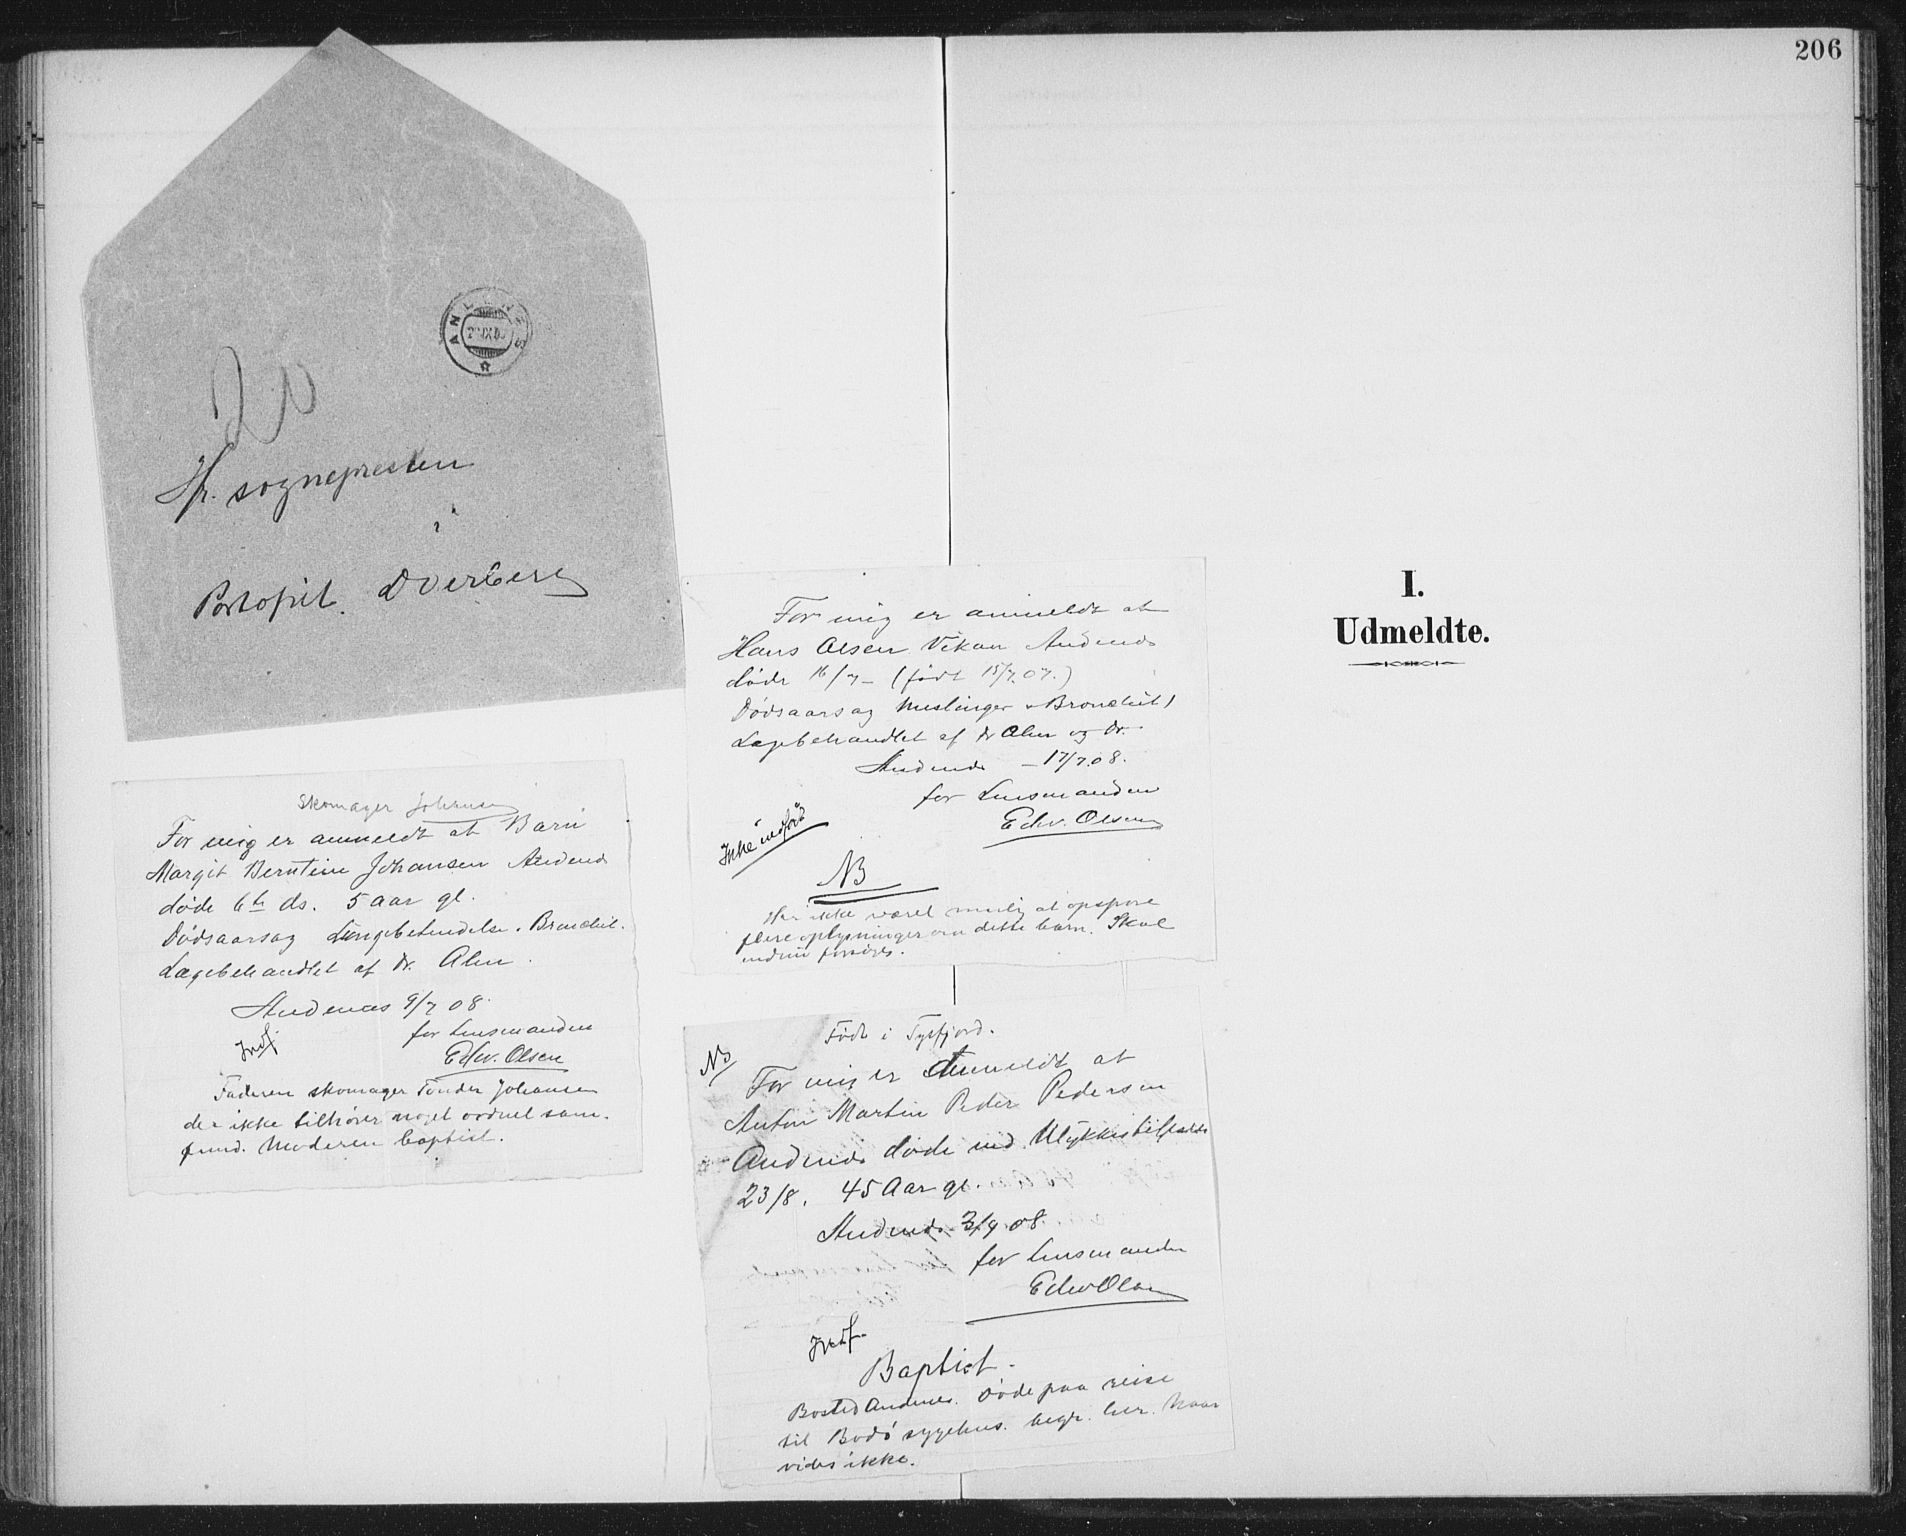 206
20
Hr. sognepresten
i
Portofrit. Dverberg
Skomager Johansen
For mig er anmeldt at Barn
Margit Berntine Johansen Andenes
døde 6te ds. 5 aar gl.
Dødsaarsag Lungebetendelse. Bronchit.
Lægebehandlet af Dr. Alm.
Andenes 9/7 08.
for Lensmanden
Edv. Olsen
Indf.
Faderen skomager Johansen
der ikke tilhører noget ordnet sam-
fund. Moderen baptist.
For mig er anmeldt at
Hans Olsen Vikan Andenes
døde 16/7 - (født 15/7.07.)
Dødsaarsag Meslinger & Bronchit
Lægebehandlet af Dr Alm og Dr.
Andenes - 17/7.08.
for Lensmanden
Edv. Olsen
Ikke indført
NB
Har ikke været mulig at opspore
flere oplysninger om dette barn. Skal
endnu forsøges.
Født i Tysfjord.
NB
For mig er Anmeldt at
Anton Martin Peder Pedersen
Andenes døde ved Ulykkestilfælde
23/8. 45 Aar gl.
Andenes 3/9 08
for Lensmanden
Edv Olsen
Indf.
Baptist.
Bosted Andenes. Døde paa reise
til Bodø sygehus. begr. her. Naar
vides ikke.
I.
Udmeldte.